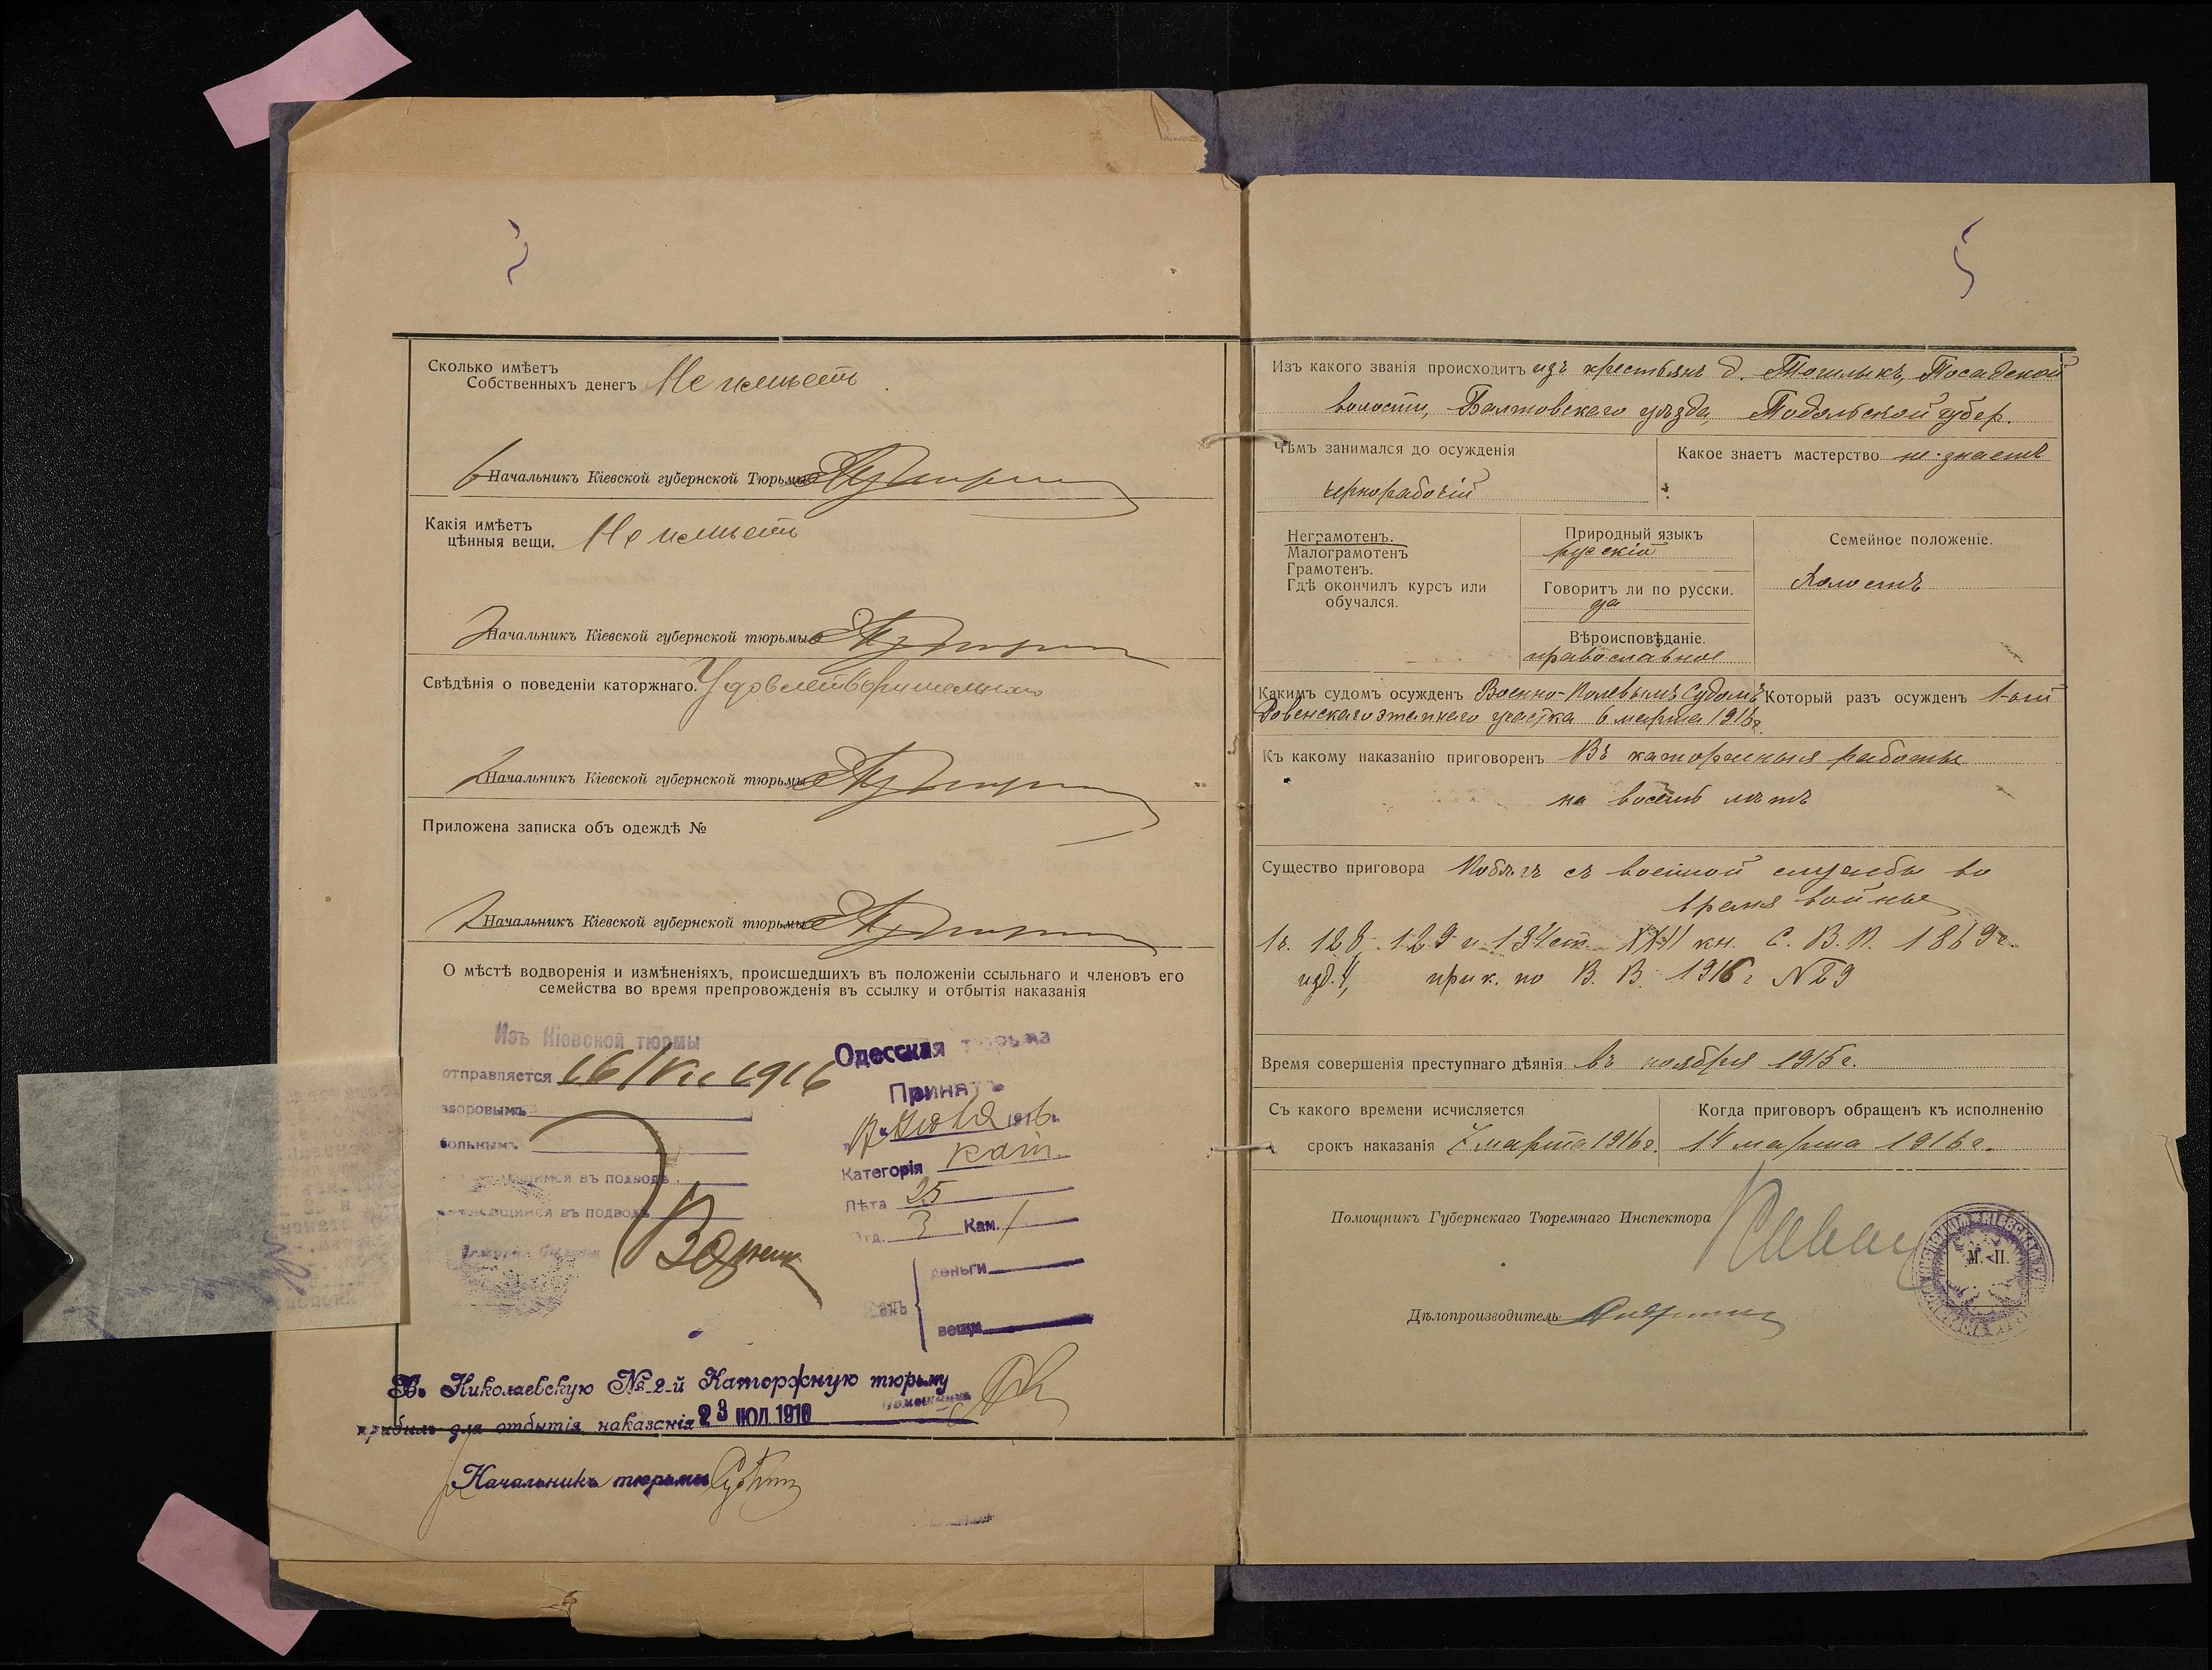 Сколько имѣетъ
Собственныхъ денегъ Не имѣетъ
Начальникъ Кіевской губернской Тюрьмы
Какія имѣетъ
цѣнныя вещи. Не имѣетъ
Начальникъ Кіевской губернской тюрьмы
Свѣдѣнія о поведеніи каторжнаго. Удовлетворительно
Начальникъ Кіевской губернской тюрьмы
Приложена записка объ одеждѣ №
Начальникъ Кіевской губернской тюрьмы
О мѣстѣ водворенія и измѣненіяхъ, происшедшихъ въ положеніи ссыльнаго и членовъ его
семейства во время препровожденія въ ссылку и отбытія наказанія
Изъ Кіевской тюрмы
отправляется 16/VII 1916
здоровымъ
больнымъ
въ подводѣ
въ подводѣ
Одесская тюрьма
Принятъ
Іюля 1916г.
Категорія кат.
Лѣта 25
Отд. 3 Кам. 1
деньги
вещи
Въ Николаевскую № 2-й Каторжную тюрьму
прибылъ для отбытія наказанія 23 ІЮЛ. 1916
Помощникъ
Начальникъ тюрьмы
Изъ какого званія происходитъ изъ крестьянъ д. Посадской
волости, Балтовскаго уѣзда, Подольской губер.
Чѣмъ занимался до осужденія
чернорабочій
Какое знаетъ мастерство не знаетъ
Неграмотенъ.
Малограмотенъ
Грамотенъ.
Гдѣ окончилъ курсъ или
обучался.
Природный языкъ
русскій
Говоритъ ли по русски.
да
Вѣроисповѣданіе.
православное
Семейное положеніе.
Холостъ
Какимъ судомъ осужденъ Военно-Полевымъ Судомъ
Ровенскаго этапнаго участка 6 марта 1916г.
Который разъ осужденъ 1-ый
Къ какому наказанію приговоренъ Въ каторжныя работы
на восемь лѣтъ
Существо приговора Побѣгъ съ военной службы во
время войны
1 ч. 128, 129 и 134 ст. XXII кн. С. В. П. 1869 г.
изд. 4, прик. по В. В. 1916 г. № 29
Время совершенія преступнаго дѣянія въ ноября 1915 г.
Съ какого времени исчисляется
срокъ наказанія 7 марта 1916 г.
Когда приговоръ обращенъ къ исполненію
14 марта 1916 г.
Помощникъ Губернскаго Тюремнаго Инспектора
М. П.
Дѣлопроизводитель